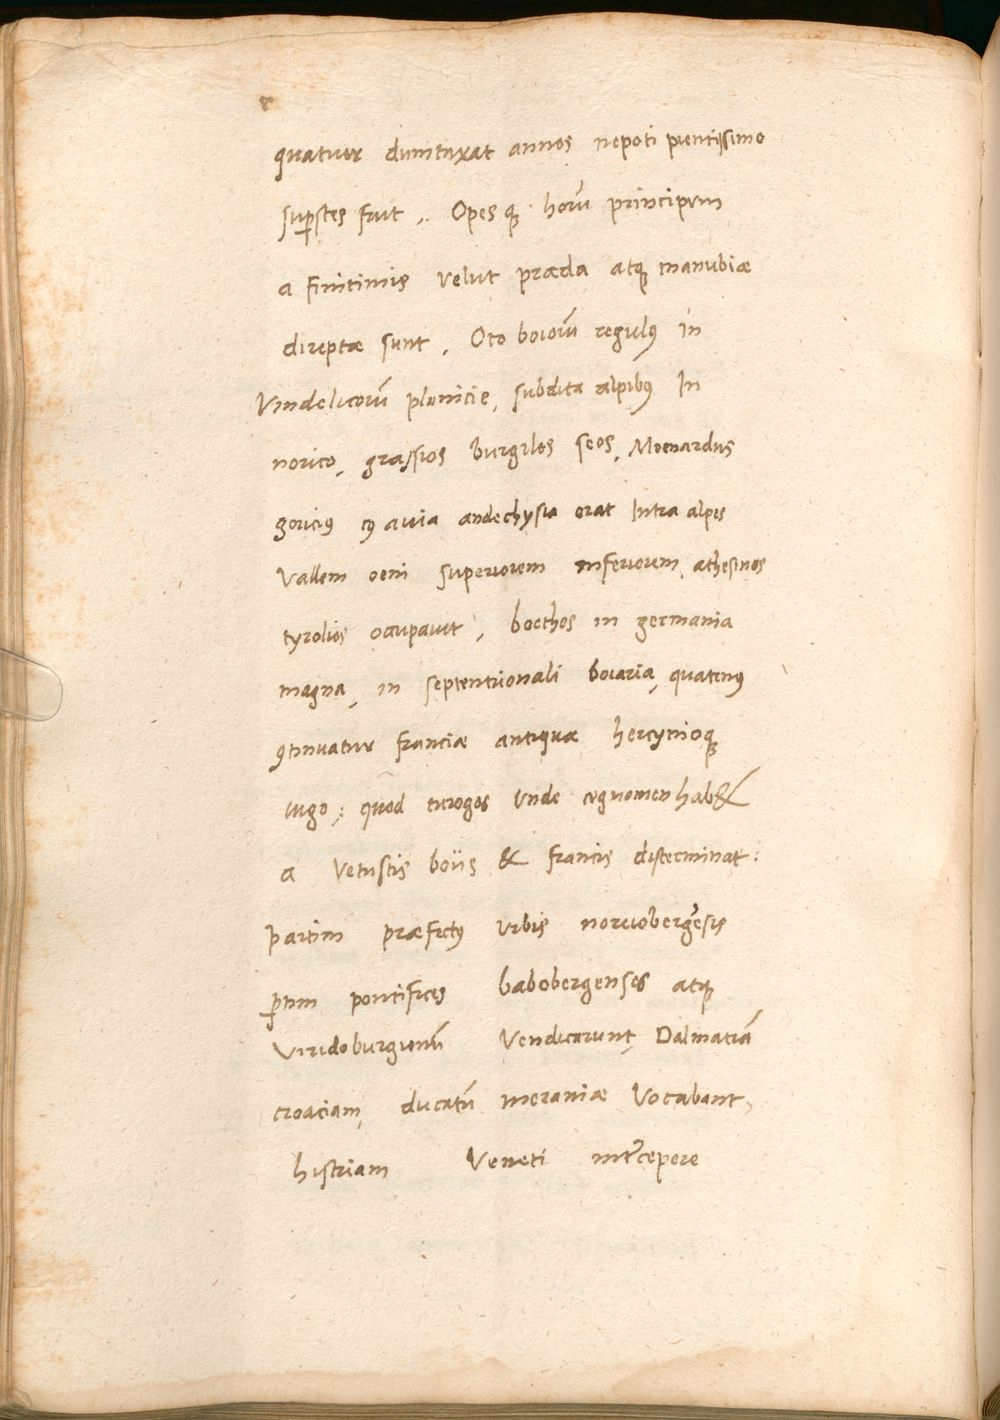 quatuor dumtaxat annos nepoti pientissimo
sup̱stes fuit ,. Opes qꝫ horū principum
a finitimis velut præda atqꝫ manubiæ
direptæ sunt , Oto boiorū regulꝰ in
Vindelicorū planicie, subdita alpibꝰ In
norico, grassios burgiles seos, Moenardus
goriciꝰ cꝰ auia andechysia erat Intra alpes
Vallem oeni superiorem inferiorem, athesinos
tyrolios occupauit , boethos in germania
magna, in septentrionali boiaria, quatenꝰ
ꝯtinuatur franciæ antiquæ hercynioqꝫ
iugo ; quod turogos Vnde cognomen hab&
a Vetustis boiis & francis disterminat :
partim præfectꝰ Vrbis noruobergēsis
ꝑtim pontifices babobergenses atqꝫ
Viridoburgionū Vendicarunt, Dalmatiā
croaciam, ducatū meraniæ Vocabant,
histriam Veneti intercepere